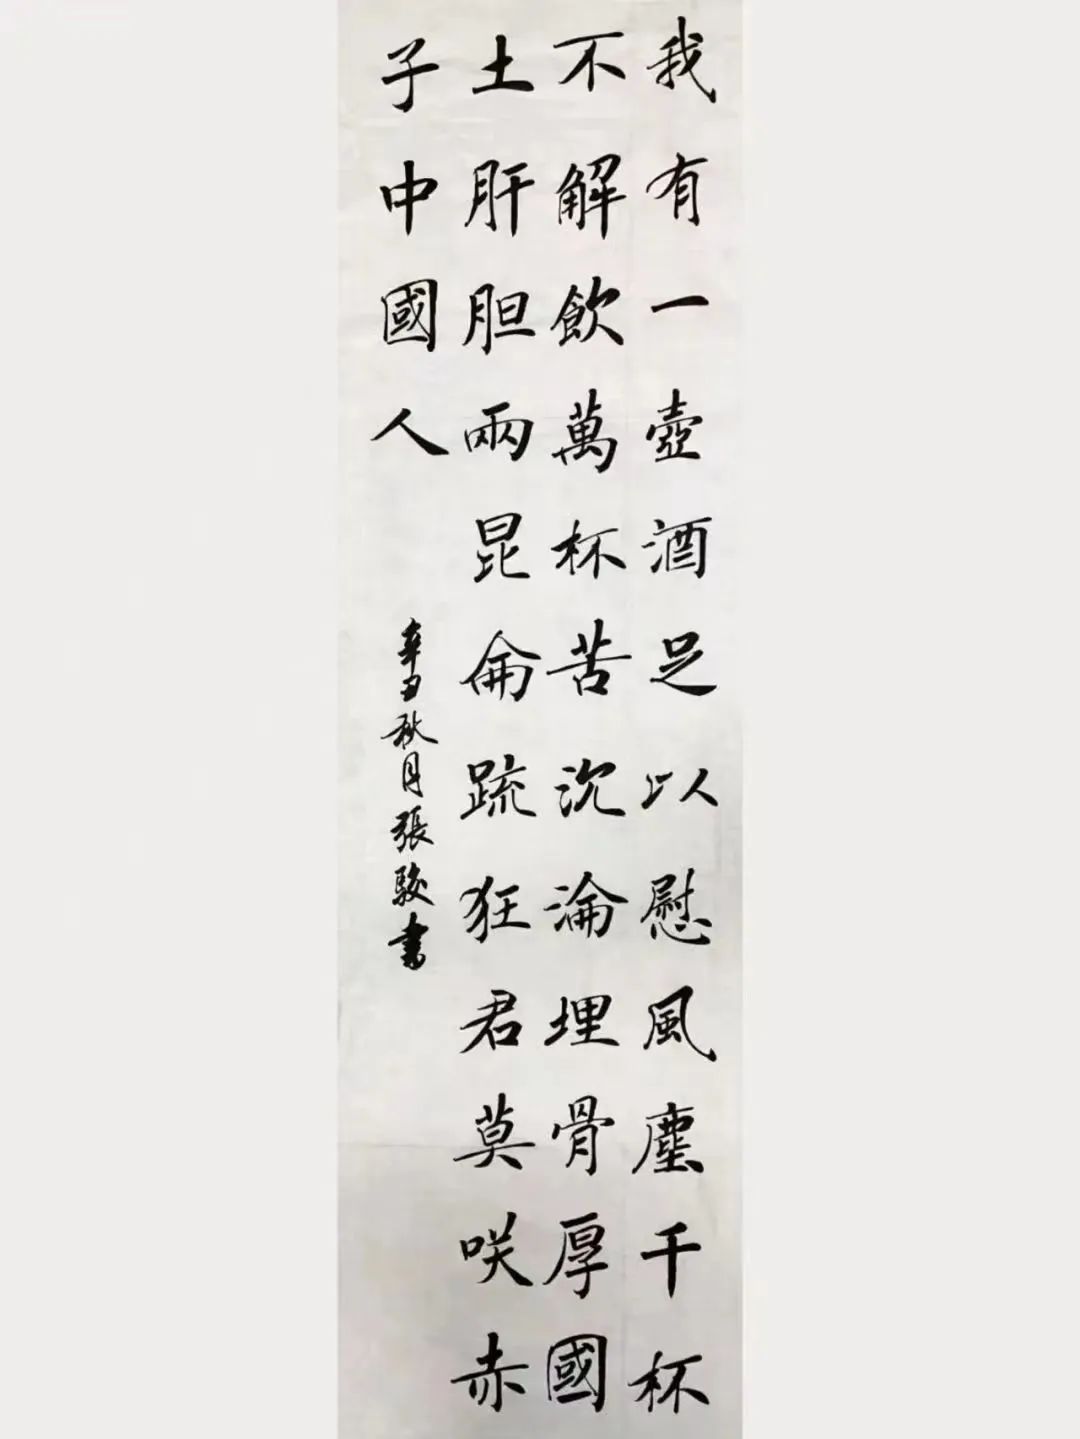 我有一壺酒足以慰風塵千杯
不解飲萬杯苦沉淪埋骨厚國
土肝胆兩昆侖疏狂君莫咲赤
子中國人
辛丑秋月張駿書